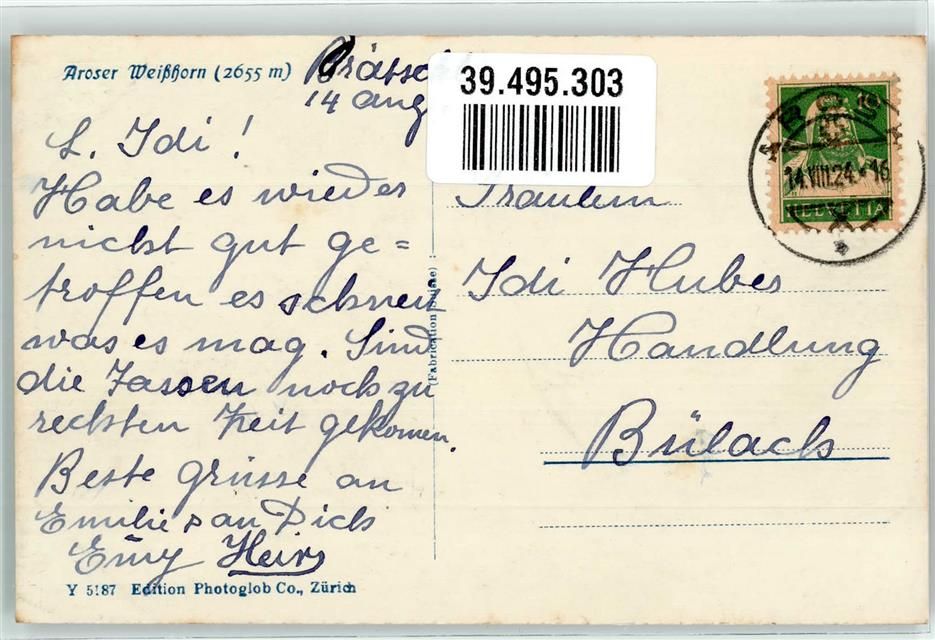 Aroser Weißhorn (2655 m)
14 Aug
39.495.303
L. Idi!
Habe es wieder
nicht gut ge=
troffen es schneit
was es mag. Sind
die Tassen noch zu
rechten Zeit gekomen.
Beste Grüsse an
Emilie & an Dich
Emy
Y 5187 Edition Photoglob Co., Zürich
(Fabrication Suisse)
14.VIII.24.-16
HELVETIA
10
Fräulein
Idi Huber
Handlung
Bülach